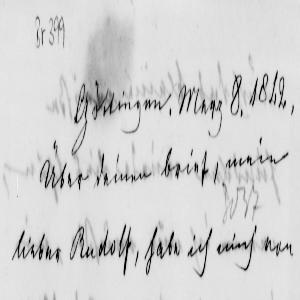 Br 399
Göttingen, Merz 8. 1842.
Über deinen brief, mein
lieber Rudolf, habe ich mich von